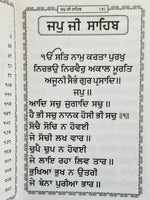 ਜਪੁ ਜੀ ਸਾਹਿਬ
ੴ ਸਤਿ ਨਾਮੁ ਕਰਤਾ ਪੁਰਖੁ
ਨਿਰਭਉ ਨਿਰਵੈਰੁ ਅਕਾਲ ਮੂਰਤਿ
ਅਜੂਨੀ ਸੈਭੰ ਗੁਰਪ੍ਰਸਾਦਿ॥
ਜਪੁ॥
ਆਦਿ ਸਚੁ ਜੁਗਾਦਿ ਸਚੁ॥
ਹੈ ਭੀ ਸਚੁ ਨਾਨਕ ਹੋਸੀ ਭੀ ਸਚੁ॥੧॥
ਸੋਚੈ ਸੋਚਿ ਨ ਹੋਵਈ
ਜੇ ਸੋਚੀ ਲਖ ਵਾਰ॥
ਚੁਪੈ ਚੁਪ ਨ ਹੋਵਈ
ਜੇ ਲਾਇ ਰਹਾ ਲਿਵ ਤਾਰ॥
ਭੁਖਿਆ ਭੁਖ ਨ ਉਤਰੀ
ਜੇ ਬੰਨਾ ਪੁਰੀਆ ਭਾਰ॥